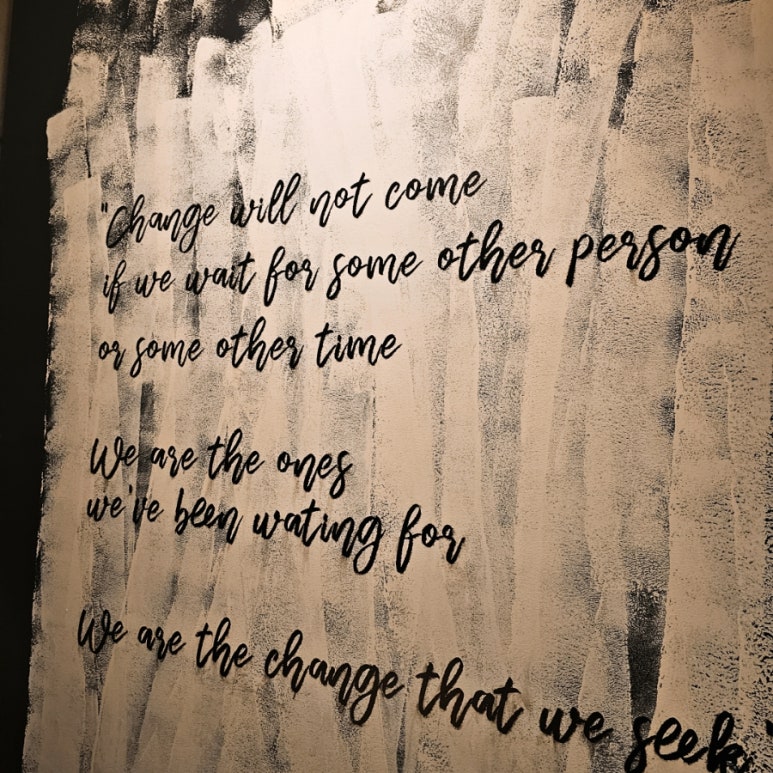 "Change will not come
if we wait for some other person
or some other time
We are the ones
we've been wating for
We are the change that we seek"